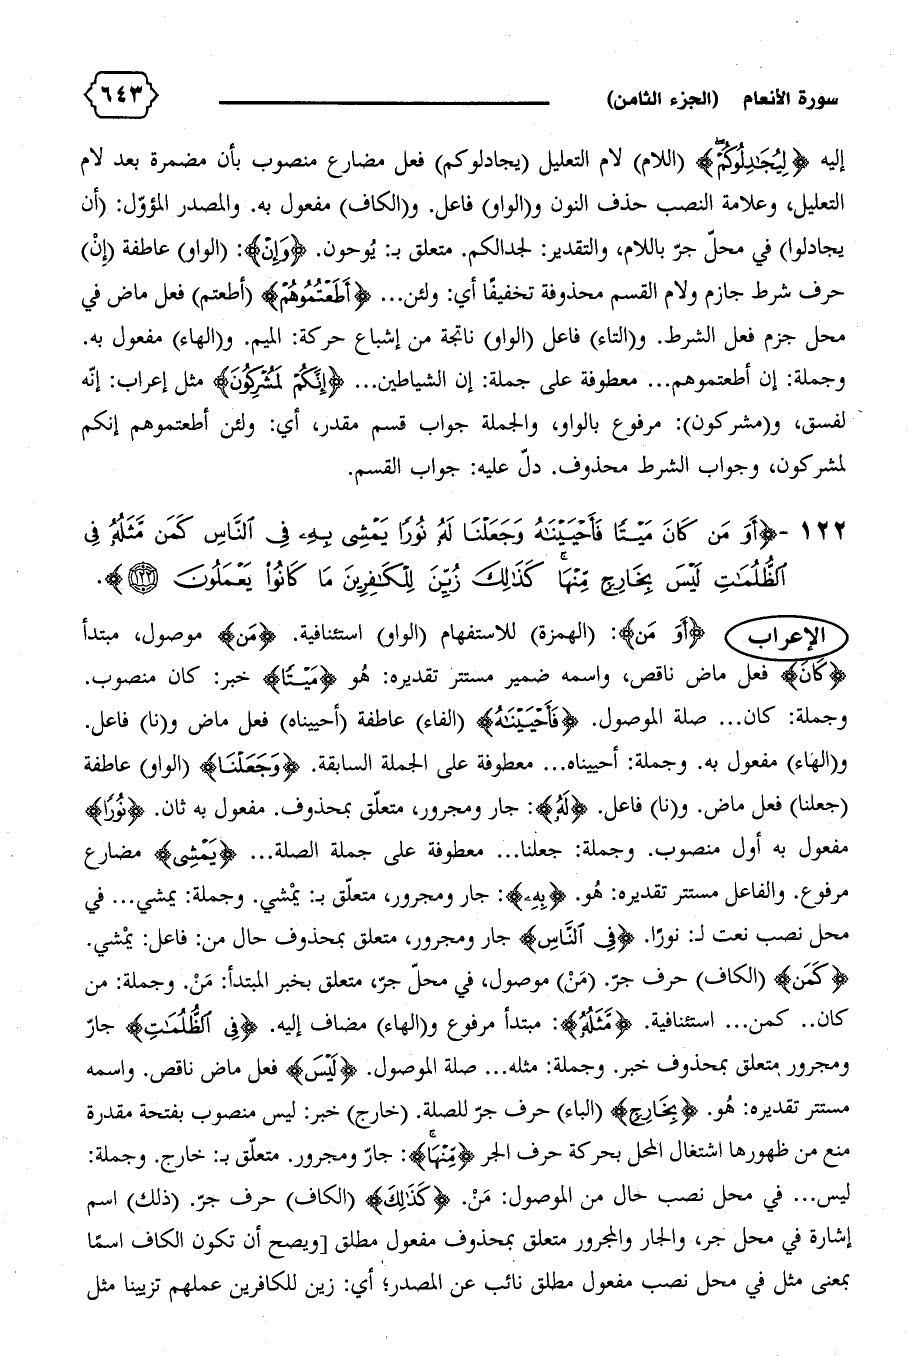 سورة الأنعام (الجزء الثامن) ٦٤٣
إليه ﴿لِيُجَٰدِلُوكُمۡۖ﴾ (اللام) لام التعليل (يجادلوكم) فعل مضارع منصوب بأن مضمرة بعد لام
التعليل، وعلامة النصب حذف النون و(الواو) فاعل. و(الكاف) مفعول به. والمصدر المؤوّل: (أن
يجادلوا) في محلّ جرّ باللام، والتقدير: لجدالكم. متعلق بـ: يُوحون. ﴿وَإِنۡ﴾: (الواو) عاطفة (إنْ)
حرف شرط جازم ولام القسم محذوفة تخفيفًا أي: ولئن... ﴿أَطَعۡتُمُوهُمۡ﴾ (أطعتم) فعل ماض في
محل جزم فعل الشرط. و(التاء) فاعل (الواو) ناتجة من إشباع حركة: الميم. و(الهاء) مفعول به.
وجملة: إن أطعتموهم... معطوفة على جملة: إن الشياطين... ﴿إِنَّكُمۡ لَمُشۡرِكُونَ﴾ مثل إعراب: إنّه
لفسق، و(مشركون): مرفوع بالواو، والجملة جواب قسم مقدر، أي: ولئن أطعتموهم إنكم
لمشركون، وجواب الشرط محذوف. دلّ عليه: جواب القسم.
١٢٢ -﴿أَوَ مَن كَانَ مَيۡتٗا فَأَحۡيَيۡنَٰهُ وَجَعَلۡنَا لَهُۥ نُورٗا يَمۡشِي بِهِۦ فِي ٱلنَّاسِ كَمَن مَّثَلُهُۥ فِي
ٱلظُّلُمَٰتِ لَيۡسَ بِخَارِجٖ مِّنۡهَاۚ كَذَٰلِكَ زُيِّنَ لِلۡكَٰفِرِينَ مَا كَانُواْ يَعۡمَلُونَ ١٢٢﴾.
الإعراب ﴿أَوَ مَن﴾: (الهمزة) للاستفهام (الواو) استئنافية. ﴿مَن﴾ موصول، مبتدأ
﴿كَانَ﴾ فعل ماض ناقص، واسمه ضمير مستتر تقديره: هُو ﴿مَيۡتٗا﴾ خبر: كان منصوب.
وجملة: كان... صلة الموصول. ﴿فَأَحۡيَيۡنَٰهُ﴾ (الفاء) عاطفة (أحييناه) فعل ماض و(نا) فاعل.
و(الهاء) مفعول به. وجملة: أحييناه... معطوفة على الجملة السابقة. ﴿وَجَعَلۡنَا﴾ (الواو) عاطفة
(جعلنا) فعل ماض. و(نا) فاعل. ﴿لَهُۥ﴾: جار ومجرور، متعلّق بمحذوف. مفعول به ثان. ﴿نُورٗا﴾
مفعول به أول منصوب. وجملة: جعلنا... معطوفة على جملة الصلة... ﴿يَمۡشِي﴾ مضارع
مرفوع. والفاعل مستتر تقديره: هُو. ﴿بِهِۦ﴾: جار ومجرور، متعلّق بـ: يمْشي. وجملة: يمشي... في
محل نصب نعت لـ: نورًا. ﴿فِي ٱلنَّاسِ﴾ جار ومجرور، متعلق بمحذوف حال من: فاعل: يمْشي.
﴿كَمَن﴾ (الكاف) حرف جرّ. (مَنْ) موصول، في محلّ جرّ، متعلق بخبر المبتدأ: مَنْ. وجملة: من
كان.. كمن... استئنافية. ﴿مَّثَلُهُۥ﴾: مبتدأ مرفوع و(الهاء) مضاف إليه. ﴿فِي ٱلظُّلُمَٰتِ﴾ جارّ
ومجرور متعلق بمحذوف خبر. وجملة: مثله... صلة الموصول. ﴿لَيۡسَ﴾ فعل ماض ناقص. واسمه
مستتر تقديره: هُو. ﴿بِخَارِجٖ﴾ (الباء) حرف جرّ للصلة. (خارج) خبر: ليس منصوب بفتحة مقدرة
منع من ظهورها اشتغال المحل بحركة حرف الجر ﴿مِّنۡهَاۚ﴾: جارّ ومجرور. متعلّق بـ: خارج. وجملة:
ليس... في محل نصب حال من الموصول: مَنْ. ﴿كَذَٰلِكَ﴾ (الكاف) حرف جرّ. (ذلك) اسم
إشارة في محل جر، والجار والمجرور متعلق بمحذوف مفعول مطلق [ويصح أن تكون الكاف اسمًا
بمعنى مثل في محل نصب مفعول مطلق نائب عن المصدر؛ أي: زين للكافرين عملهم تزيينا مثل